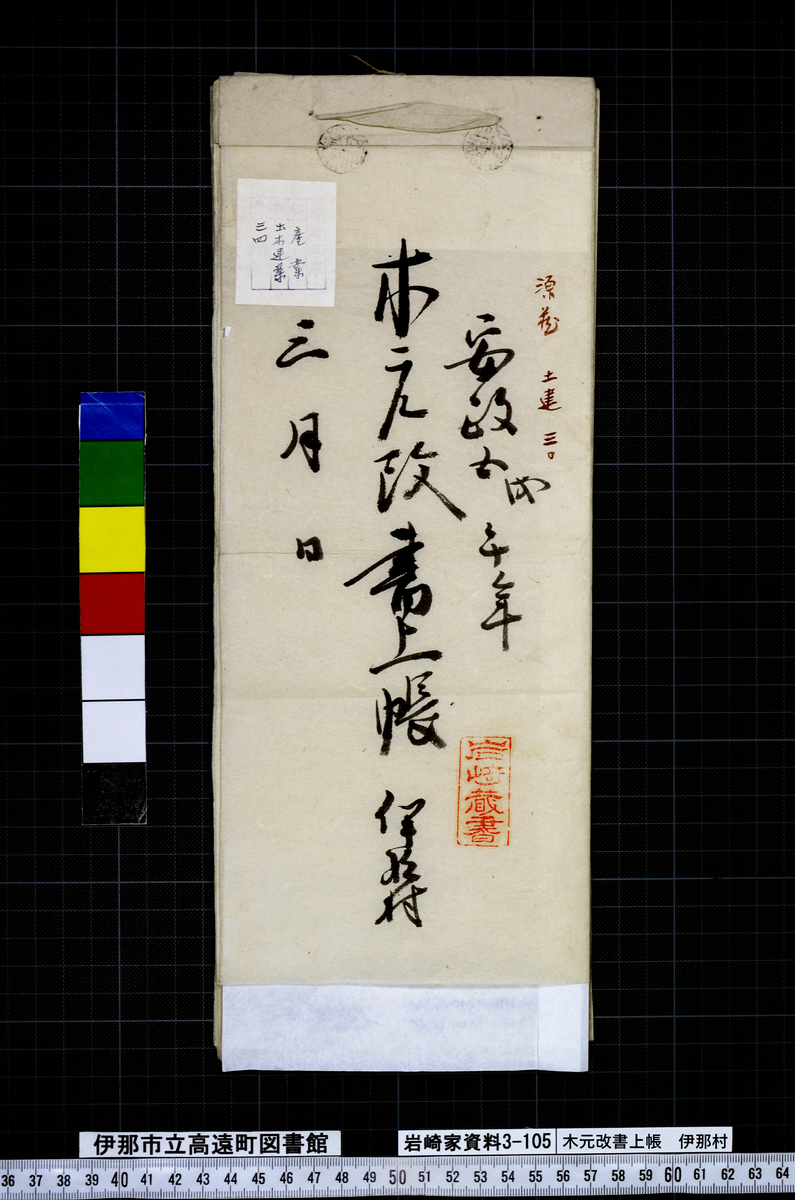 源蔵 土建 三〇
安政五年
木元改書上帳 伊那村
三月日
産業
土木建築
三四
岩崎蔵書
伊那市立高遠町図書館
岩崎家資料3-105
木元改書上帳 伊那村
36 37 38 39 40 41 42 43 44 45 46 47 48 49 50 51 52 53 54 55 56 57 58 59 60 61 62 63 64